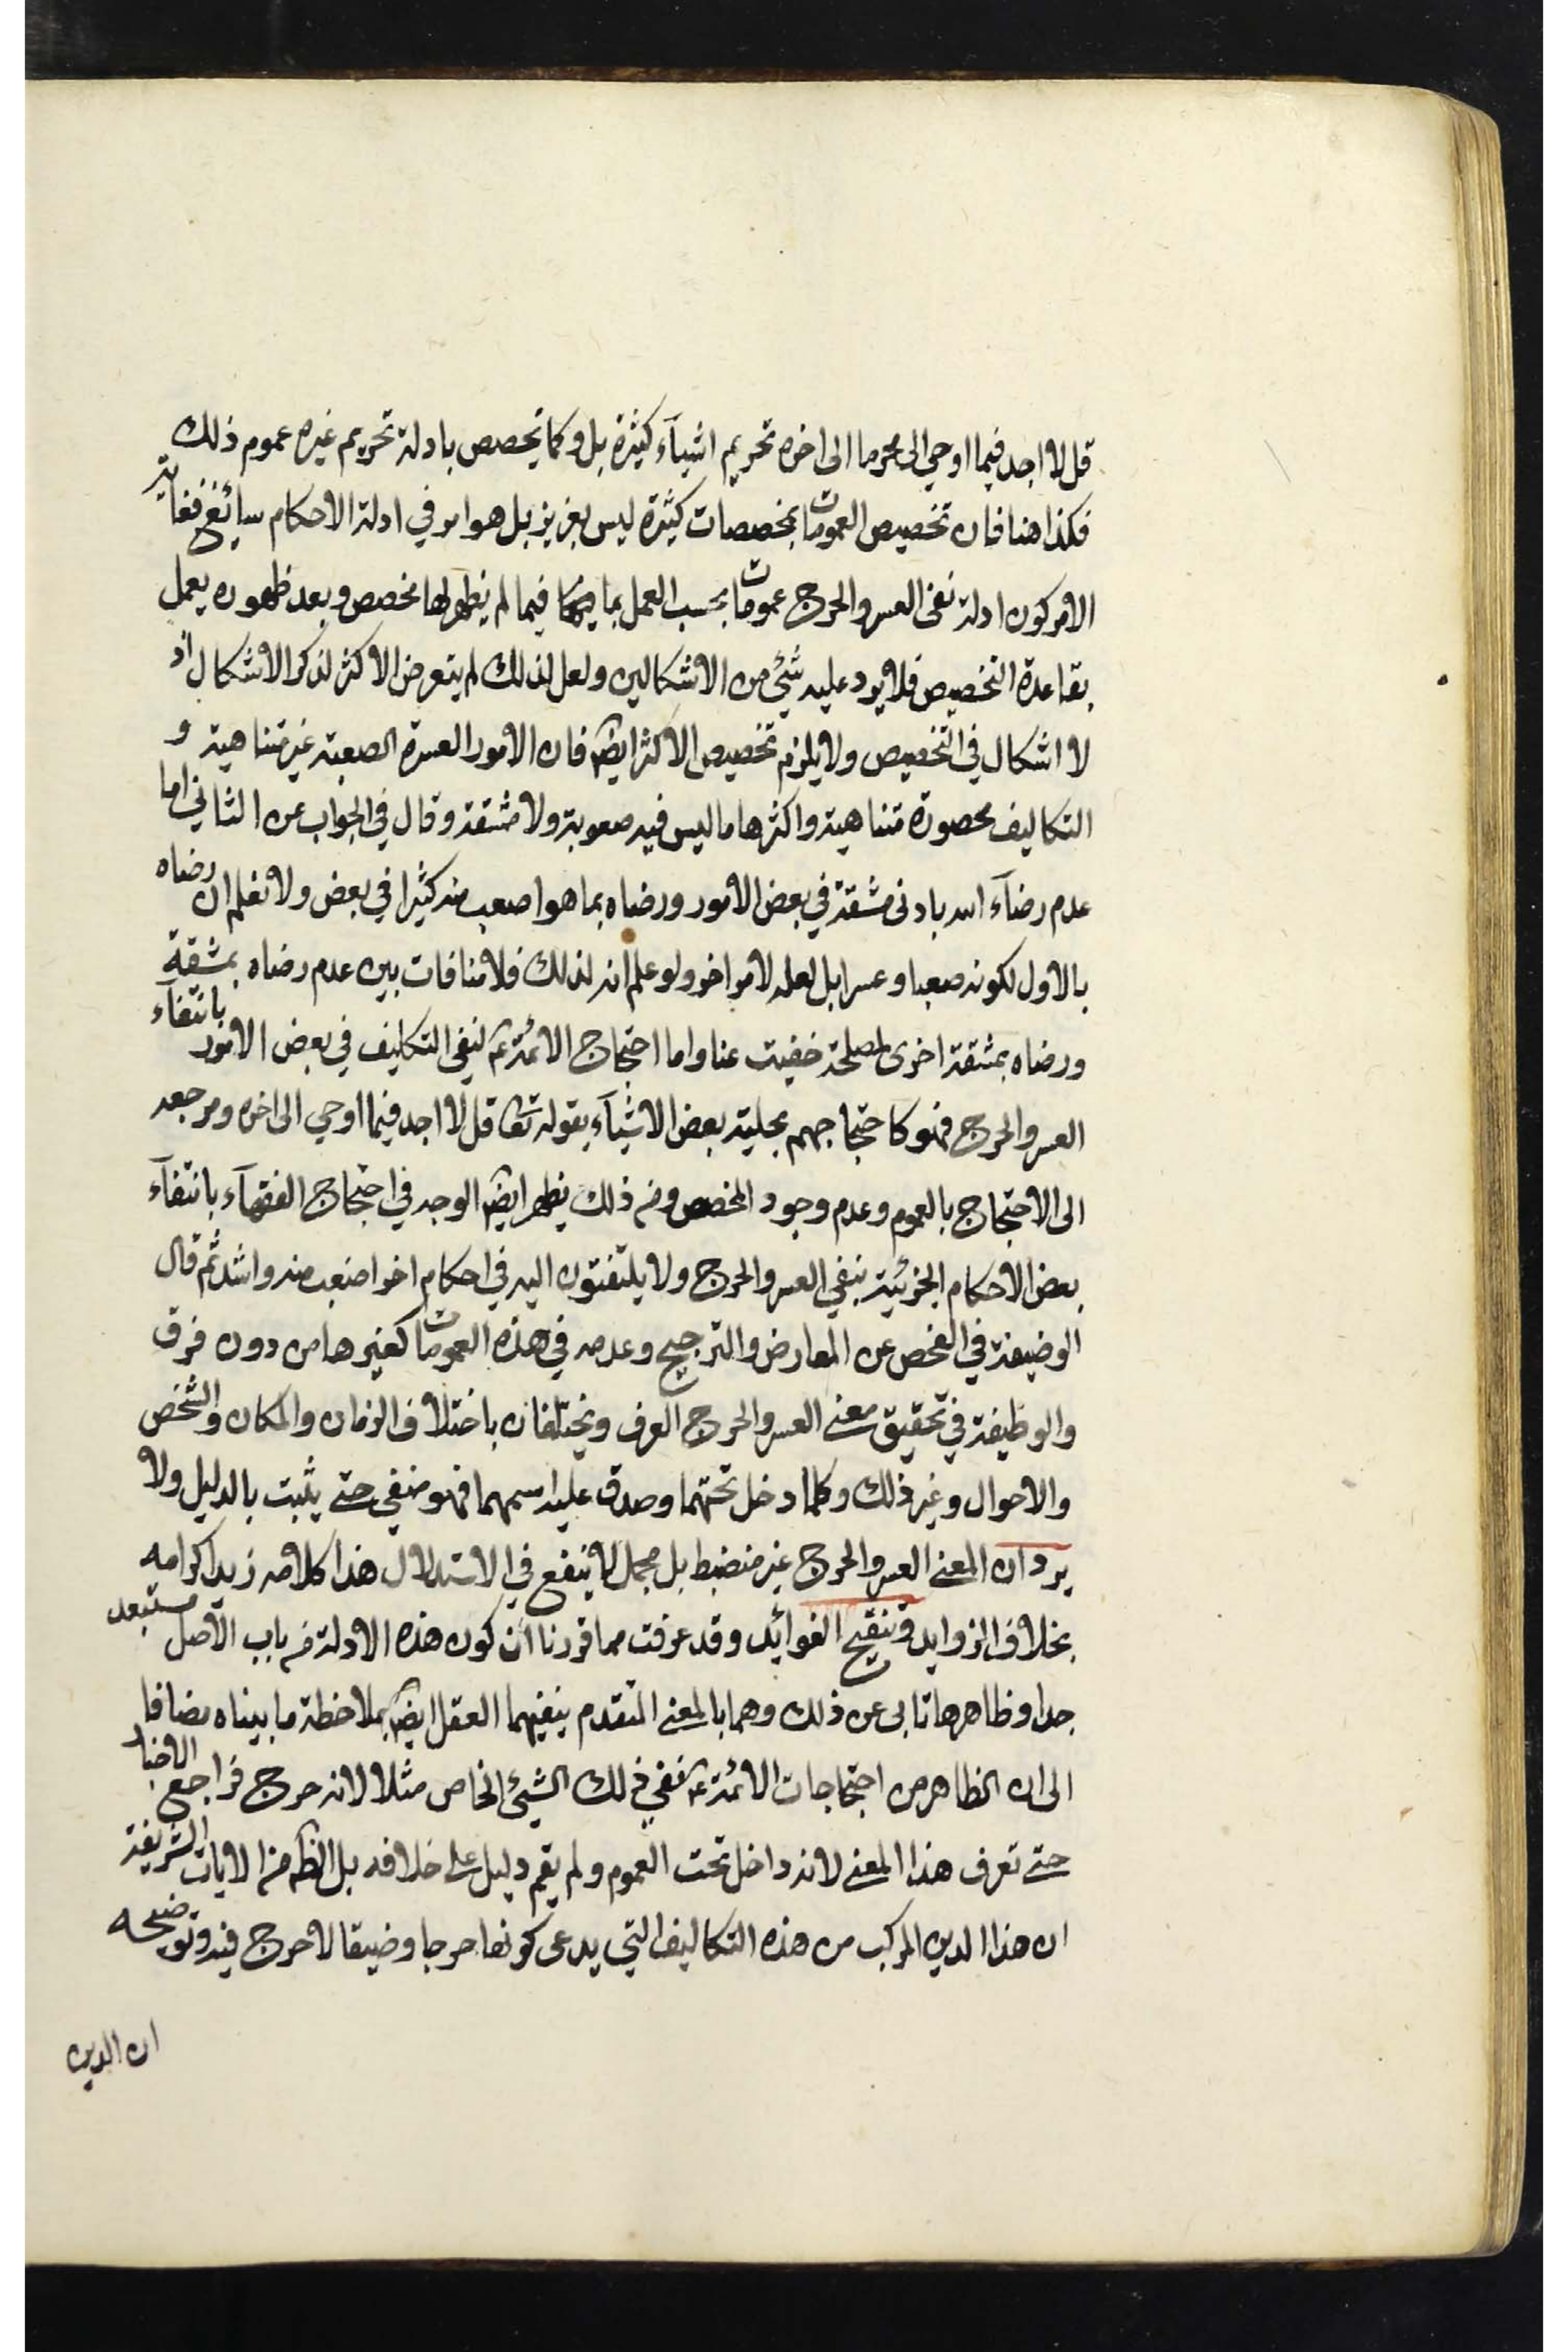 قل لا اجد فيما اوحي الى محرما الى اخره تحريم اشيآء كثيرة بل وكما يخصص بادلة تحريم غيره عموم ذلك
فكذا هنا فان تخصيص العمومات بمخصصات كثيرة ليس بعزيز بل هو امر في ادلة الاحكام سائغ فغاية
الامر كون ادلة نفى العسر والحرج عمومات يجب العمل بها فيما لم يظهر لها مخصص وبعد ظهوره يعمل
بقاعدة التخصيص فلا يرد عليه شئ من الاشكالين ولعل لذلك لم يتعرض الاكثر لذكر الاشكال اذ
لا اشكال في التخصيص ولا يلزم تخصيص الاكثر ايضا فان الامور العسرة الصعبة غير متناهية و
التكاليف محصورة متناهية واكثرها ما ليس فيه صعوبة ولا مشقة وقال في الجواب عن الثاني اما
عدم رضآء الله بادنى مشقة في بعض الامور ورضاه بما هو اصعب منه كثيرا في بعض ولا نعلم ان رضاه
بالاول لكونه صعبا وعسرا بل لعله لامر اخر ولو علم انه لذلك فلا منافات بين عدم رضاه بمشقة
ورضاه بمشقة اخرى لمصلحة خفيت عنا واما احتجاج الائمة ع لنفى التكليف في بعض الامور بانتفآء
العسر والحرج فهو كاحتجاجهم بحلية بعض الاشيآء بقوله تعا قل لا اجد فيما اوحي الى اخره ومرجعه
الى الاحتجاج بالعموم وعدم وجود المخصص ومن ذلك يظهر ايضا الوجه في احتجاج الفقهآء بانتفآء
بعض الاحكام الجزئية بنفي العسر والحرج ولا يلتفتون اليه في احكام اخر اصعب منه واشد ثم قال
الوضيفة في الفحص عن المعارض والترجيح وعدمه في هذه العمومات كغيرها من دون فرق
والوظيفة في تحقيق معنى العسر والحرج العرف ويختلفان باختلاف الزمان والمكان والشخص
والاحوال وغير ذلك وكلما دخل تحتهما وصدق عليه اسمهما فهو منفي حتى يثبت بالدليل ولا
يرد ان المعنى العسر والحرج غير منضبط بل مجمل لا ينفع في الاستدلال هذا كلامه زيد اكرامه
بخلاف الزوايد وتنقيح الفوائد وقد عرفت مما قررنا ان كون هذه الادلة من باب الاصل مستبعد
جدا وظاهرها تابى عن ذلك وهما بالمعنى المتقدم ينفيهما العقل ايضا بملاحظة ما بيناه مضافا
الى ان الظاهر من احتجاجات الائمة ع نفي ذلك الشئ الخاص مثلا لانه حرج فراجع الاخبار
حتى تعرف هذا المعنى لانه داخل تحت العموم ولم يقم دليل على خلافه بل الظ من الايات الشريفة
ان هذا الدين المركب من هذه التكاليف التي يدعى كونها حرجا وضيقا لا حرج فيه وتوضيحه
ان الدين